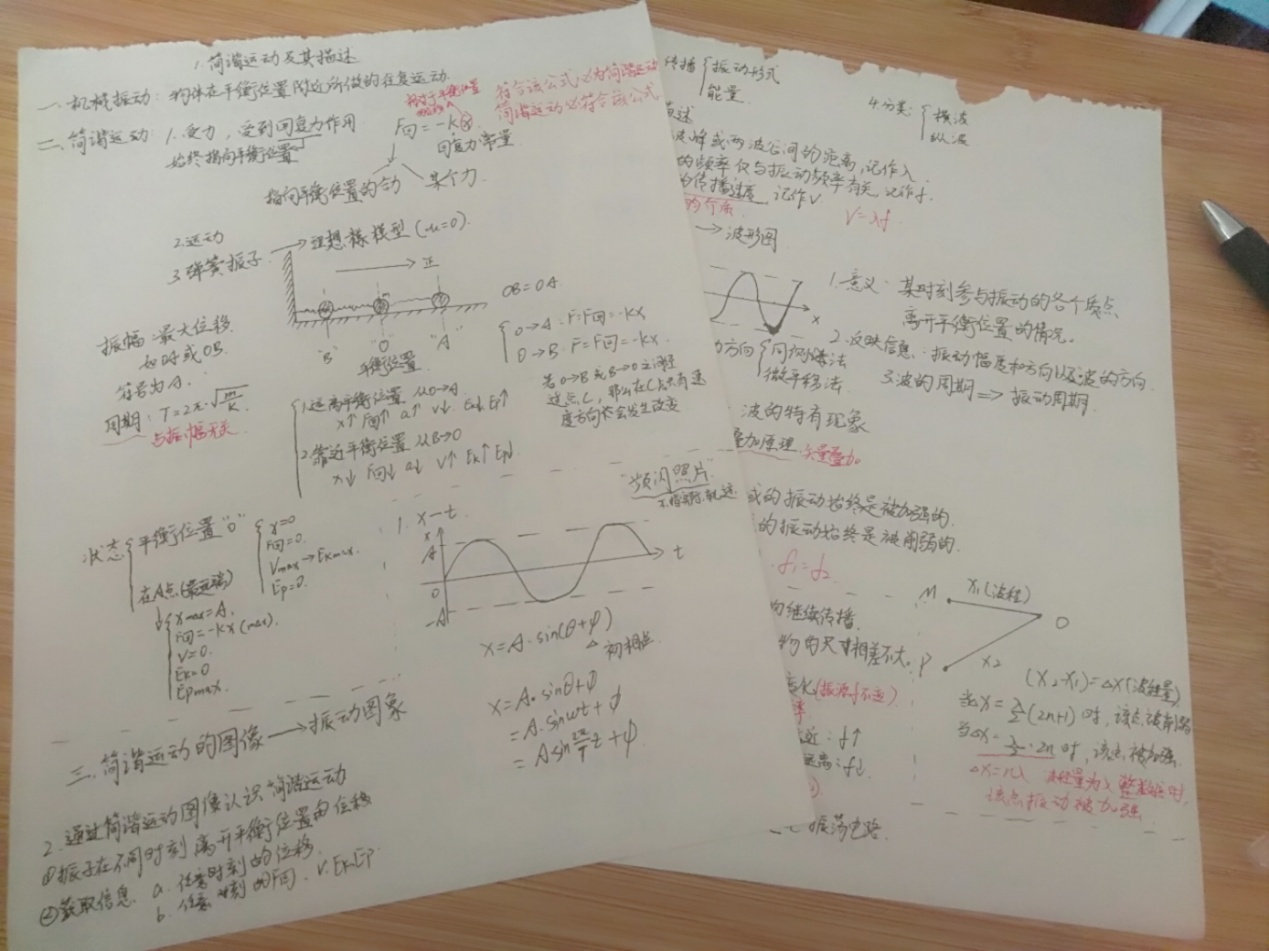 1. 简谐运动及其描述
一. 机械振动: 物体在平衡位置附近所做的往复运动.
二. 简谐运动: 1. 受力, 受到回复力作用
始终指向平衡位置
相对于平衡位置
F回=-kx
回复力常量
符合该公式必为简谐运动
简谐运动必符合该公式
指向平衡位置的合力 某个力
2. 运动
3. 弹簧振子 → 理想模型 (μ=0).
正
"B" "O" "A"
平衡位置
OB=OA
振幅: 最大位移
如OA或OB.
符号为A.
周期: T=2π·√m/k
与振幅无关
O→A: F=F回=-kx
O→B: F=F回=-kx
若O→B和B→O之间经
过点C, 那么在C点只有速
度方向会发生改变
1. 远离平衡位置 从O→A
x↑ F回↑ a↑ v↓ Ek↓ Ep↑
2. 靠近平衡位置 从B→O
x↓ F回↓ a↓ v↑ Ek↑ Ep↓
"频闪照片"
状态
平衡位置"O"
x=0
F回=0.
Vmax→Ekmax.
Ep=0.
在A点(最远端)
xmax=A.
F回=-kx (max).
v=0.
Ek=0
Epmax.
1. x-t
x
A
O
-A
t
x=A·sin(θ+φ)
初相位
x=A·sinθ+φ
=A·sinωt+φ
=A sin 2π/T t+φ
三. 简谐运动的图像→振动图象
2. 通过简谐运动图像认识简谐运动
①振子在不同时刻离开平衡位置的位移
②获取信息 a. 任意时刻的位移.
b. 任意时刻的F回. v. Ek. Ep
传播 振动形式
能量.
4. 分类: 横波
纵波
波峰或两波谷间的距离, 记作λ
的频率仅与振动频率有关, 记作f.
的传播速度, 记作V
的介质
V=λf
→波形图
x
1. 意义: 某时刻参与振动的各个质点
离开平衡位置的情况.
2. 反映信息: 振动幅度和方向以及波的方向.
方向 同侧法
微平移法.
3. 波的周期⇒振动周期
波的特有现象
叠加原理. 矢量叠加.
或的振动始终是被加强的.
的振动始终是被削弱的.
f1=f2
向继续传播.
物的尺寸相差不大.
(振源不变)
近: f↑
远离: f↓
振荡电路.
M x1(波程)
O
P x2
(x2-x1)=Δx(波程差)
当Δx=λ/2(2n+1)时, 该点被削弱
当Δx=λ/2·2n时, 该点被加强.
Δx=nλ 波程差为λ整数倍时,
该点振动被加强.